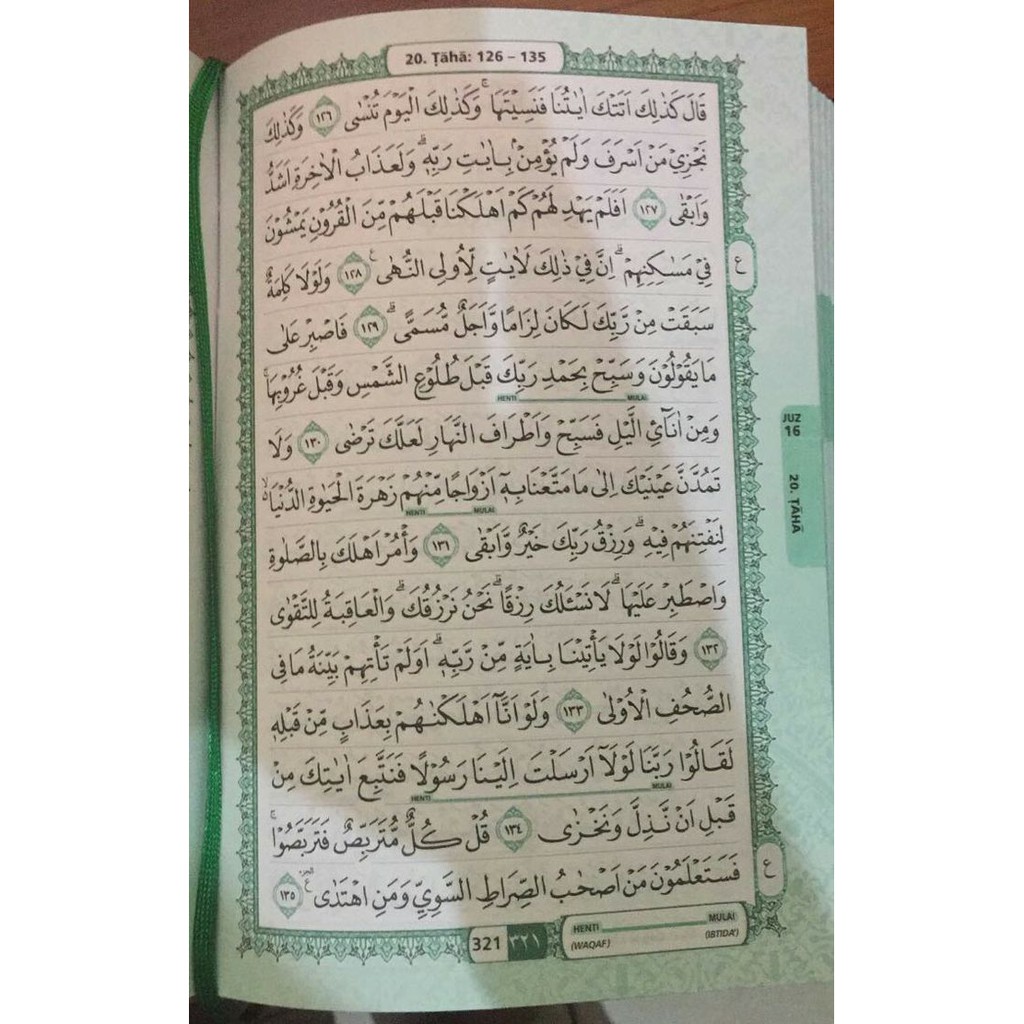 20. Ṭāhā: 126 – 135
قَالَ كَذٰلِكَ اَتَتْكَ اٰيٰتُنَا فَنَسِيْتَهَاۚ وَكَذٰلِكَ الْيَوْمَ تُنْسٰى ١٢٦ وَكَذٰلِكَ
نَجْزِيْ مَنْ اَسْرَفَ وَلَمْ يُؤْمِنْۢ بِاٰيٰتِ رَبِّهٖۗ وَلَعَذَابُ الْاٰخِرَةِ اَشَدُّ
وَاَبْقٰى ١٢٧ اَفَلَمْ يَهْدِ لَهُمْ كَمْ اَهْلَكْنَا قَبْلَهُمْ مِّنَ الْقُرُوْنِ يَمْشُوْنَ
فِيْ مَسٰكِنِهِمْۗ اِنَّ فِيْ ذٰلِكَ لَاٰيٰتٍ لِّاُولِى النُّهٰى ࣖ ١٢٨ وَلَوْلَا كَلِمَةٌ
ع
سَبَقَتْ مِنْ رَّبِّكَ لَكَانَ لِزَامًا وَّاَجَلٌ مُّسَمًّىۗ ١٢٩ فَاصْبِرْ عَلٰى
مَا يَقُوْلُوْنَ وَسَبِّحْ بِحَمْدِ رَبِّكَ قَبْلَ طُلُوْعِ الشَّمْسِ وَقَبْلَ غُرُوْبِهَاۚ
HENTI MULAI
وَمِنْ اٰنَاۤئِ الَّيْلِ فَسَبِّحْ وَاَطْرَافَ النَّهَارِ لَعَلَّكَ تَرْضٰى ١٣٠ وَلَا
JUZ
16
تَمُدَّنَّ عَيْنَيْكَ اِلٰى مَا مَتَّعْنَا بِهٖٓ اَزْوَاجًا مِّنْهُمْ زَهْرَةَ الْحَيٰوةِ الدُّنْيَا ەۙ
HENTI MULAI
20. ṬĀHĀ
لِنَفْتِنَهُمْ فِيْهِۗ وَرِزْقُ رَبِّكَ خَيْرٌ وَّاَبْقٰى ١٣١ وَأْمُرْ اَهْلَكَ بِالصَّلٰوةِ
وَاصْطَبِرْ عَلَيْهَاۗ لَا نَسْـَٔلُكَ رِزْقًاۗ نَحْنُ نَرْزُقُكَۗ وَالْعَاقِبَةُ لِلتَّقْوٰى
١٣٢ وَقَالُوْا لَوْلَا يَأْتِيْنَا بِاٰيَةٍ مِّنْ رَّبِّهٖۗ اَوَلَمْ تَأْتِهِمْ بَيِّنَةُ مَا فِى
الصُّحُفِ الْاُوْلٰى ١٣٣ وَلَوْ اَنَّآ اَهْلَكْنٰهُمْ بِعَذَابٍ مِّنْ قَبْلِهٖ
لَقَالُوْا رَبَّنَا لَوْلَآ اَرْسَلْتَ اِلَيْنَا رَسُوْلًا فَنَتَّبِعَ اٰيٰتِكَ مِنْ
HENTI MULAI
قَبْلِ اَنْ نَّذِلَّ وَنَخْزٰى ١٣٤ قُلْ كُلٌّ مُّتَرَبِّصٌ فَتَرَبَّصُوْاۚ
فَسَتَعْلَمُوْنَ مَنْ اَصْحٰبُ الصِّرَاطِ السَّوِيِّ وَمَنِ اهْتَدٰى ࣖ ١٣٥
ع
321 ٣٢١
HENTI MULAI
(WAQAF) (IBTIDA')